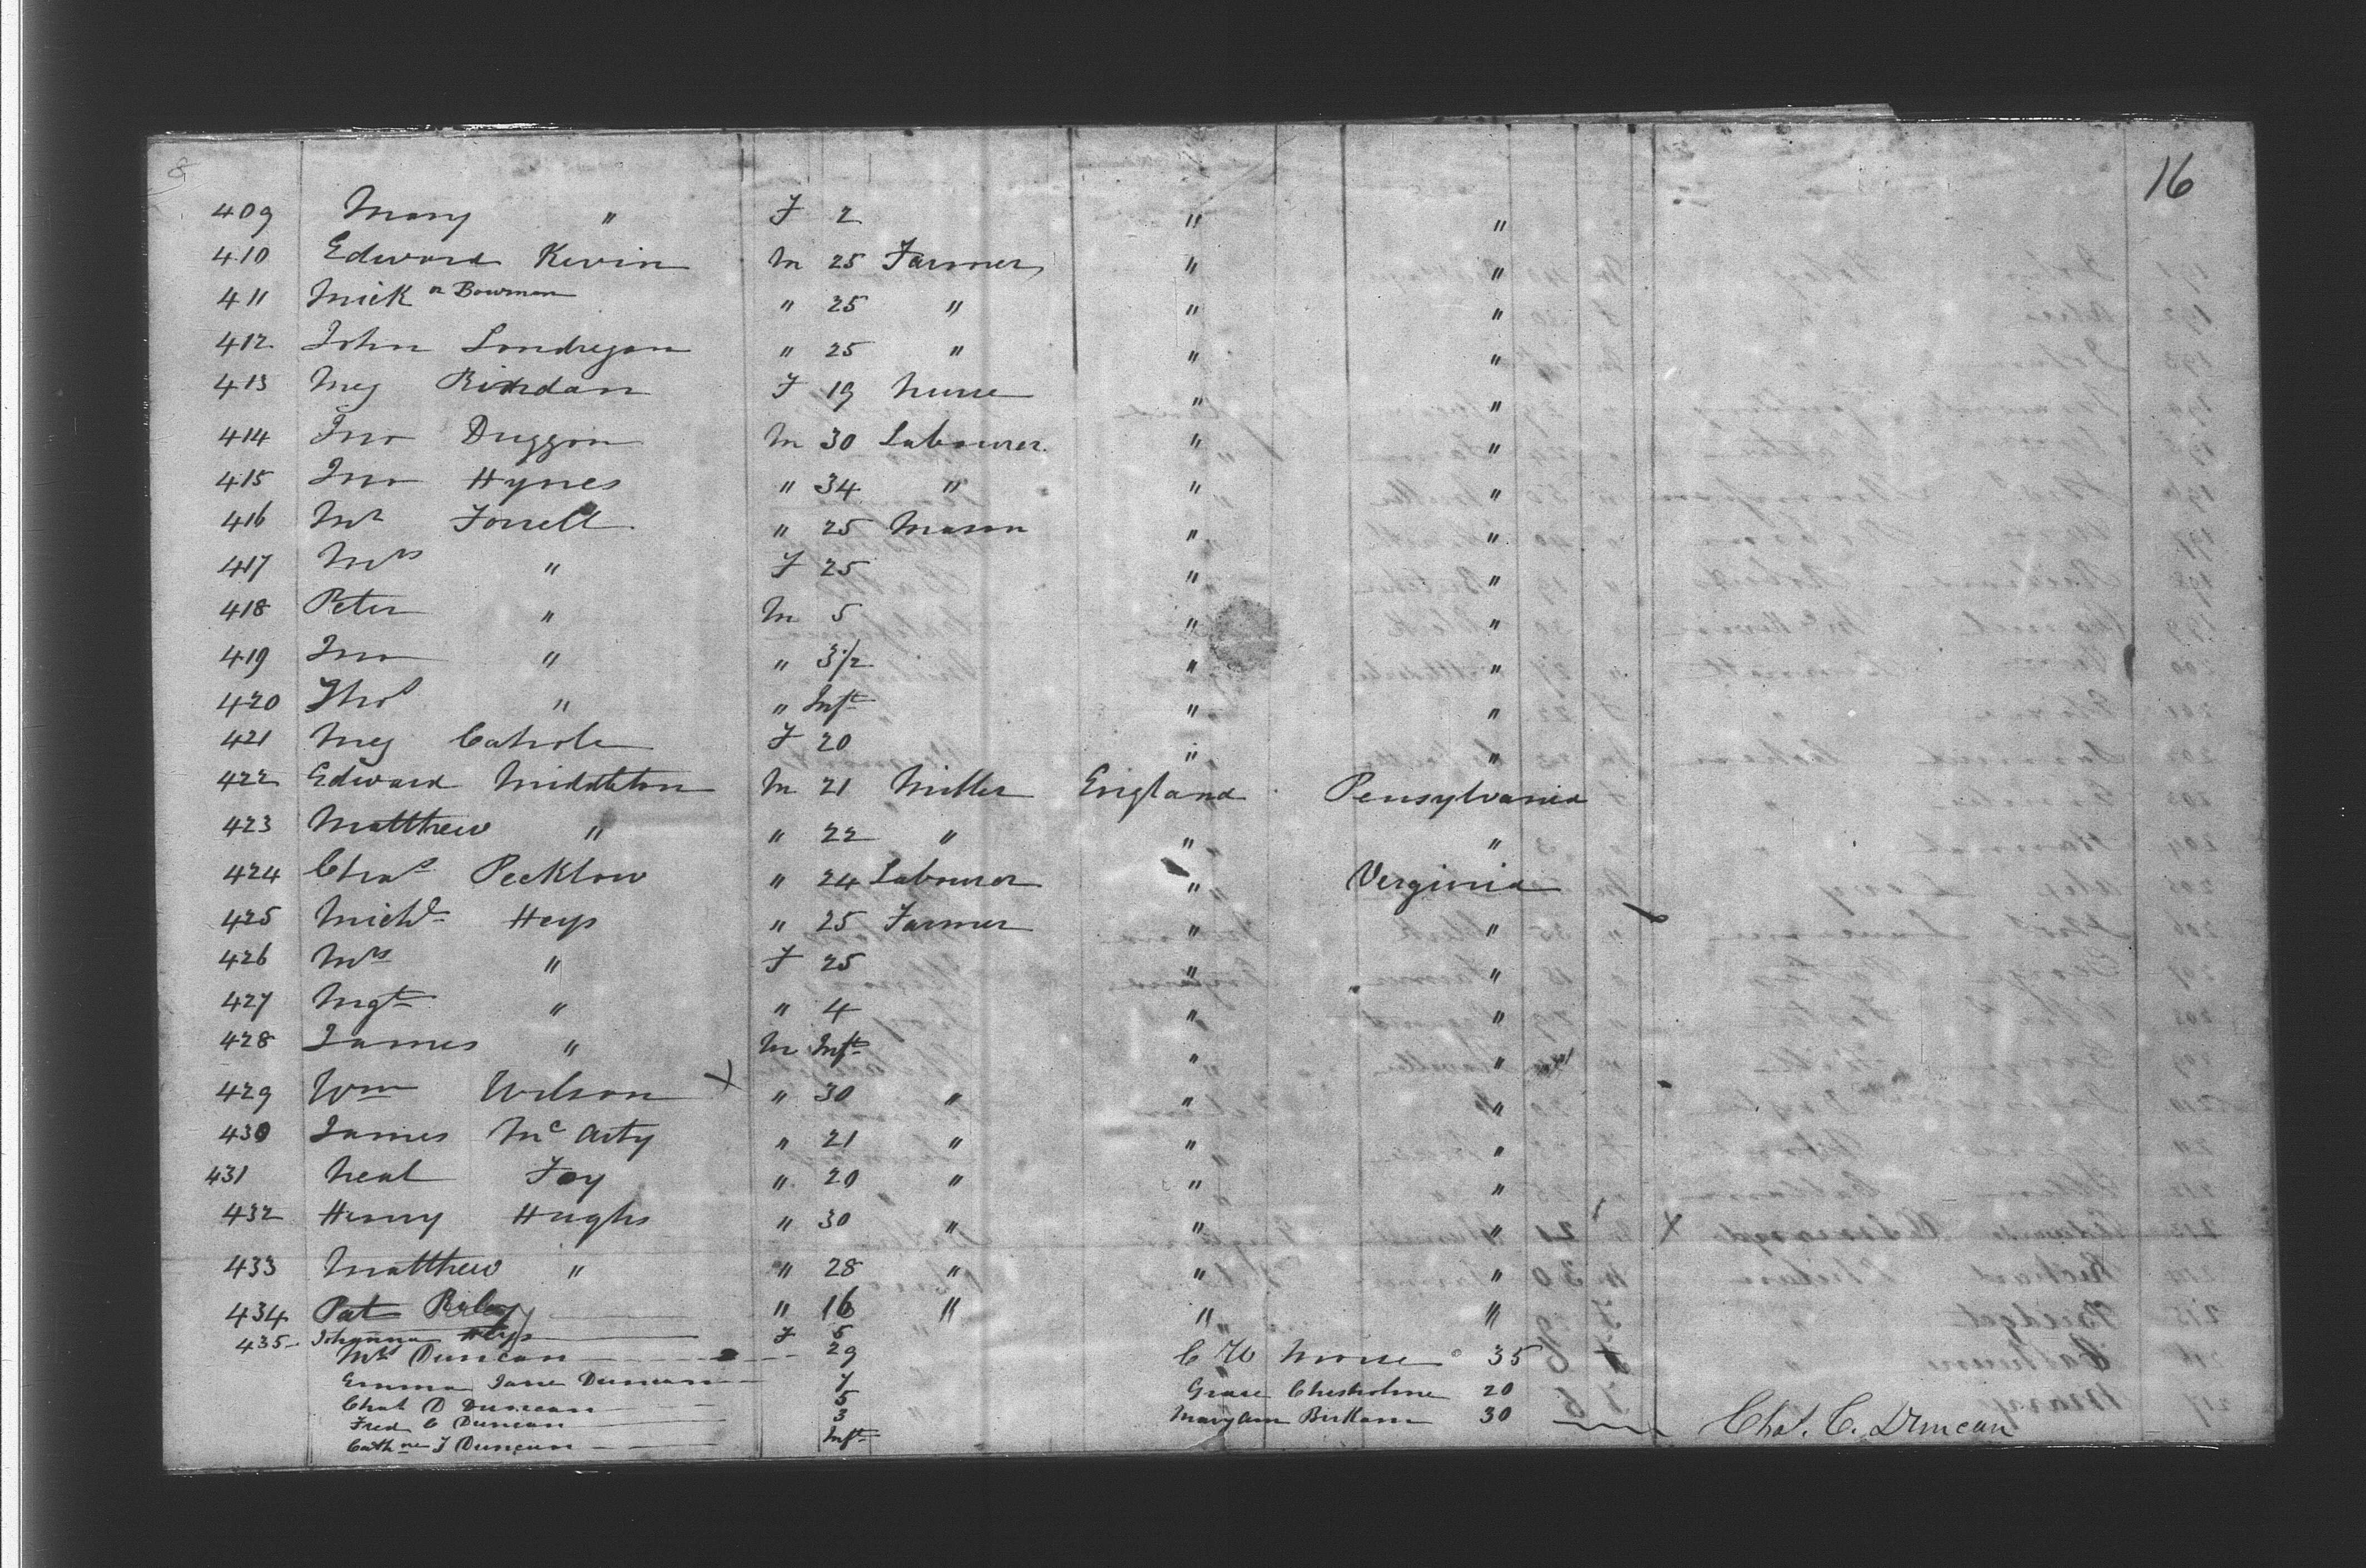 8
16
409 Mary " F 2 " "
410 Edward Kevin M 25 Farmer " "
411 Mick " Bowman " 25 " " "
412 John Londregan " 25 " " "
413 Meg Riordan F 19 Nurse " "
414 Jno Duggan M 30 Labourer " "
415 Jno Hynes " 34 " " "
416 Mr Forrell " 25 Mason " "
417 Mrs " F 25 " "
418 Peter " M 5 " "
419 Jno " " 3 1/2 " "
420 Thos " " Inft " "
421 Meg F 20 " "
422 Edward Middleton M 21 Miller England Pensylvania
423 Matthew " " 22 " " "
424 Chas Pecklow " 24 Labourer " Verginia
425 Michl Heys " 25 Farmer " "
426 Mrs " F 25 " "
427 Mgt " " 4 " "
428 James " M Inft " "
429 Wm Wilson X " 30 " " "
430 James Mc Arty " 21 " " "
431 Neal Foy " 20 " " "
432 Henry Hughs " 30 " " "
433 Matthew " " 28 " " "
434 Pat Riley " 16 " " "
435 Johanna Heys F 5
Mrs Duncan 29 C W Morse 35
Emma Jane Duncan 7 Grace Chesholme 20
Chas D Duncan 5
Fred C Duncan 3 Mary Ann 30 Chas. C. Duncan
Cathne J Duncan Inft